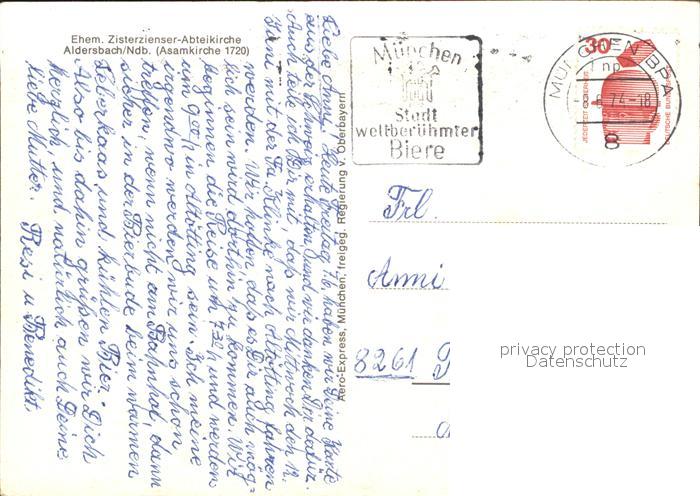 Ehem. Zisterzienser-Abteikirche
Aldersbach/Ndb. (Asamkirche 1720)
Liebe Anni! Heute Freitag 7.6. haben wir Deine Karte
aus der Schweiz erhalten, und wir danken Dir dafür.
Auch teile ich Dir mit, daß wir Mittwoch den 12.
Juni mit der Fa. Klinke nach Altötting fahren
werden. Wir hoffen, daß es Dir auch mög-
lich sein wird dorthin zu kommen. Wir
beginnen die Reise um 7 30 h und werden
um 9 00 h in Altötting sein. Ich meine
irgendwo werden wir uns schon
treffen, wenn nicht am Bahnhof, dann
sicher in der Bierbude beim warmen
Leberkaas und kühlen Bier.
Also bis dahin grüßen wir Dich
herzlich und natürlich auch Deine
liebe Mutter. Resi u Benedikt.
Aero-Express, München, freigeg. Regierung v. Oberbayern
München
Stadt
weltberühmter
Biere
MÜNCHEN BPA
74-18
8
30
JEDERZEIT SICHERHEIT
DEUTSCHE BUNDESPOST
Frl.
Anni
8261
privacy protection
Datenschutz